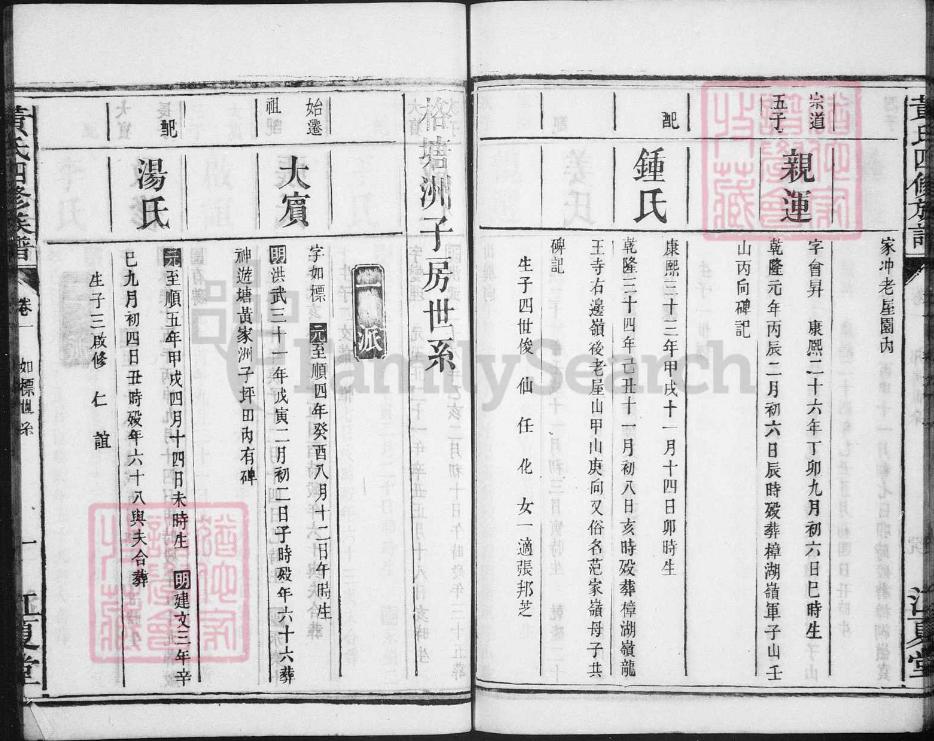 家冲老屋園內
宗道
五子
親運
字曾昇 康熙二十六年丁卯九月初六日巳時生
乾隆元年丙辰二月初六日辰時殁葬樟湖嶺軍子山壬
山丙向碑記
配
鍾氏
康熙三十三年甲戌十一月十四日卯時生
乾隆三十四年己丑十一月初八日亥時殁葬樟湖嶺龍
王寺右邊嶺後老屋山甲山庚向又俗名范家嶺母子共
碑記
生子四世俊 仙 任 化 女一適張邦芝
黃氏四修族譜
江夏堂
格塘洲子房世系
派
始遷
祖
大賓
字如標 元至順四年癸酉八月十二日午時生
明洪武三十一年戊寅二月初二日子時殁年六十六葬
神遊塘黃家洲子坪田內有碑
配
湯氏
元至順五年甲戌四月十四日未時生 明建文三年辛
巳九月初四日丑時殁年六十八與夫合葬
生子三啟修 仁 誼
黃氏四修族譜
卷一
如標世系
一
江夏堂
FamilySearch